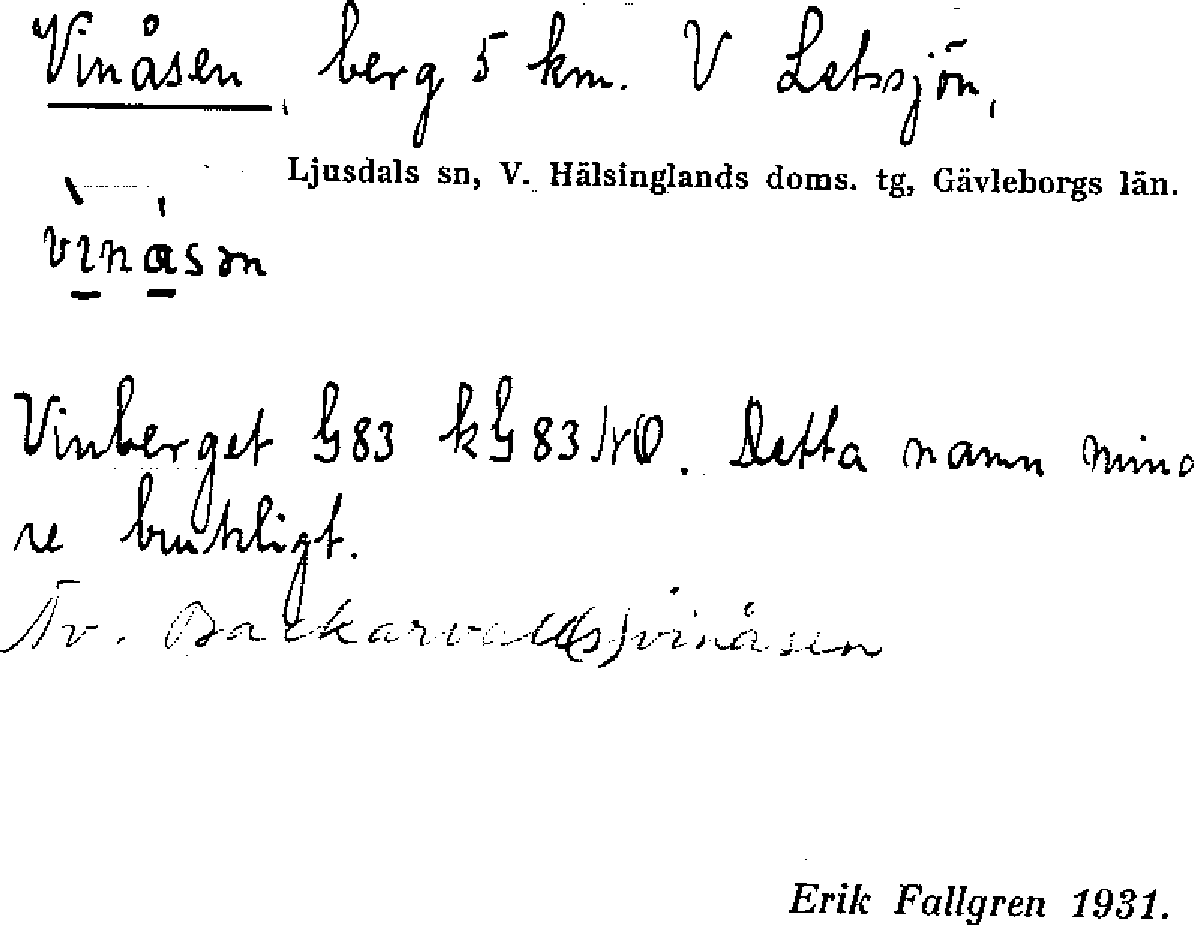 Vinåsen, berg 5 km. V Letssjön,
Ljusdals sn, V. Hälsinglands doms. tg, Gävleborgs län.
vinåsən
Vinberget G83 kG 83 NO. Detta namn mind
re brukligt.
Äv. Backarvall(s)vinåsen
Erik Fallgren 1931.